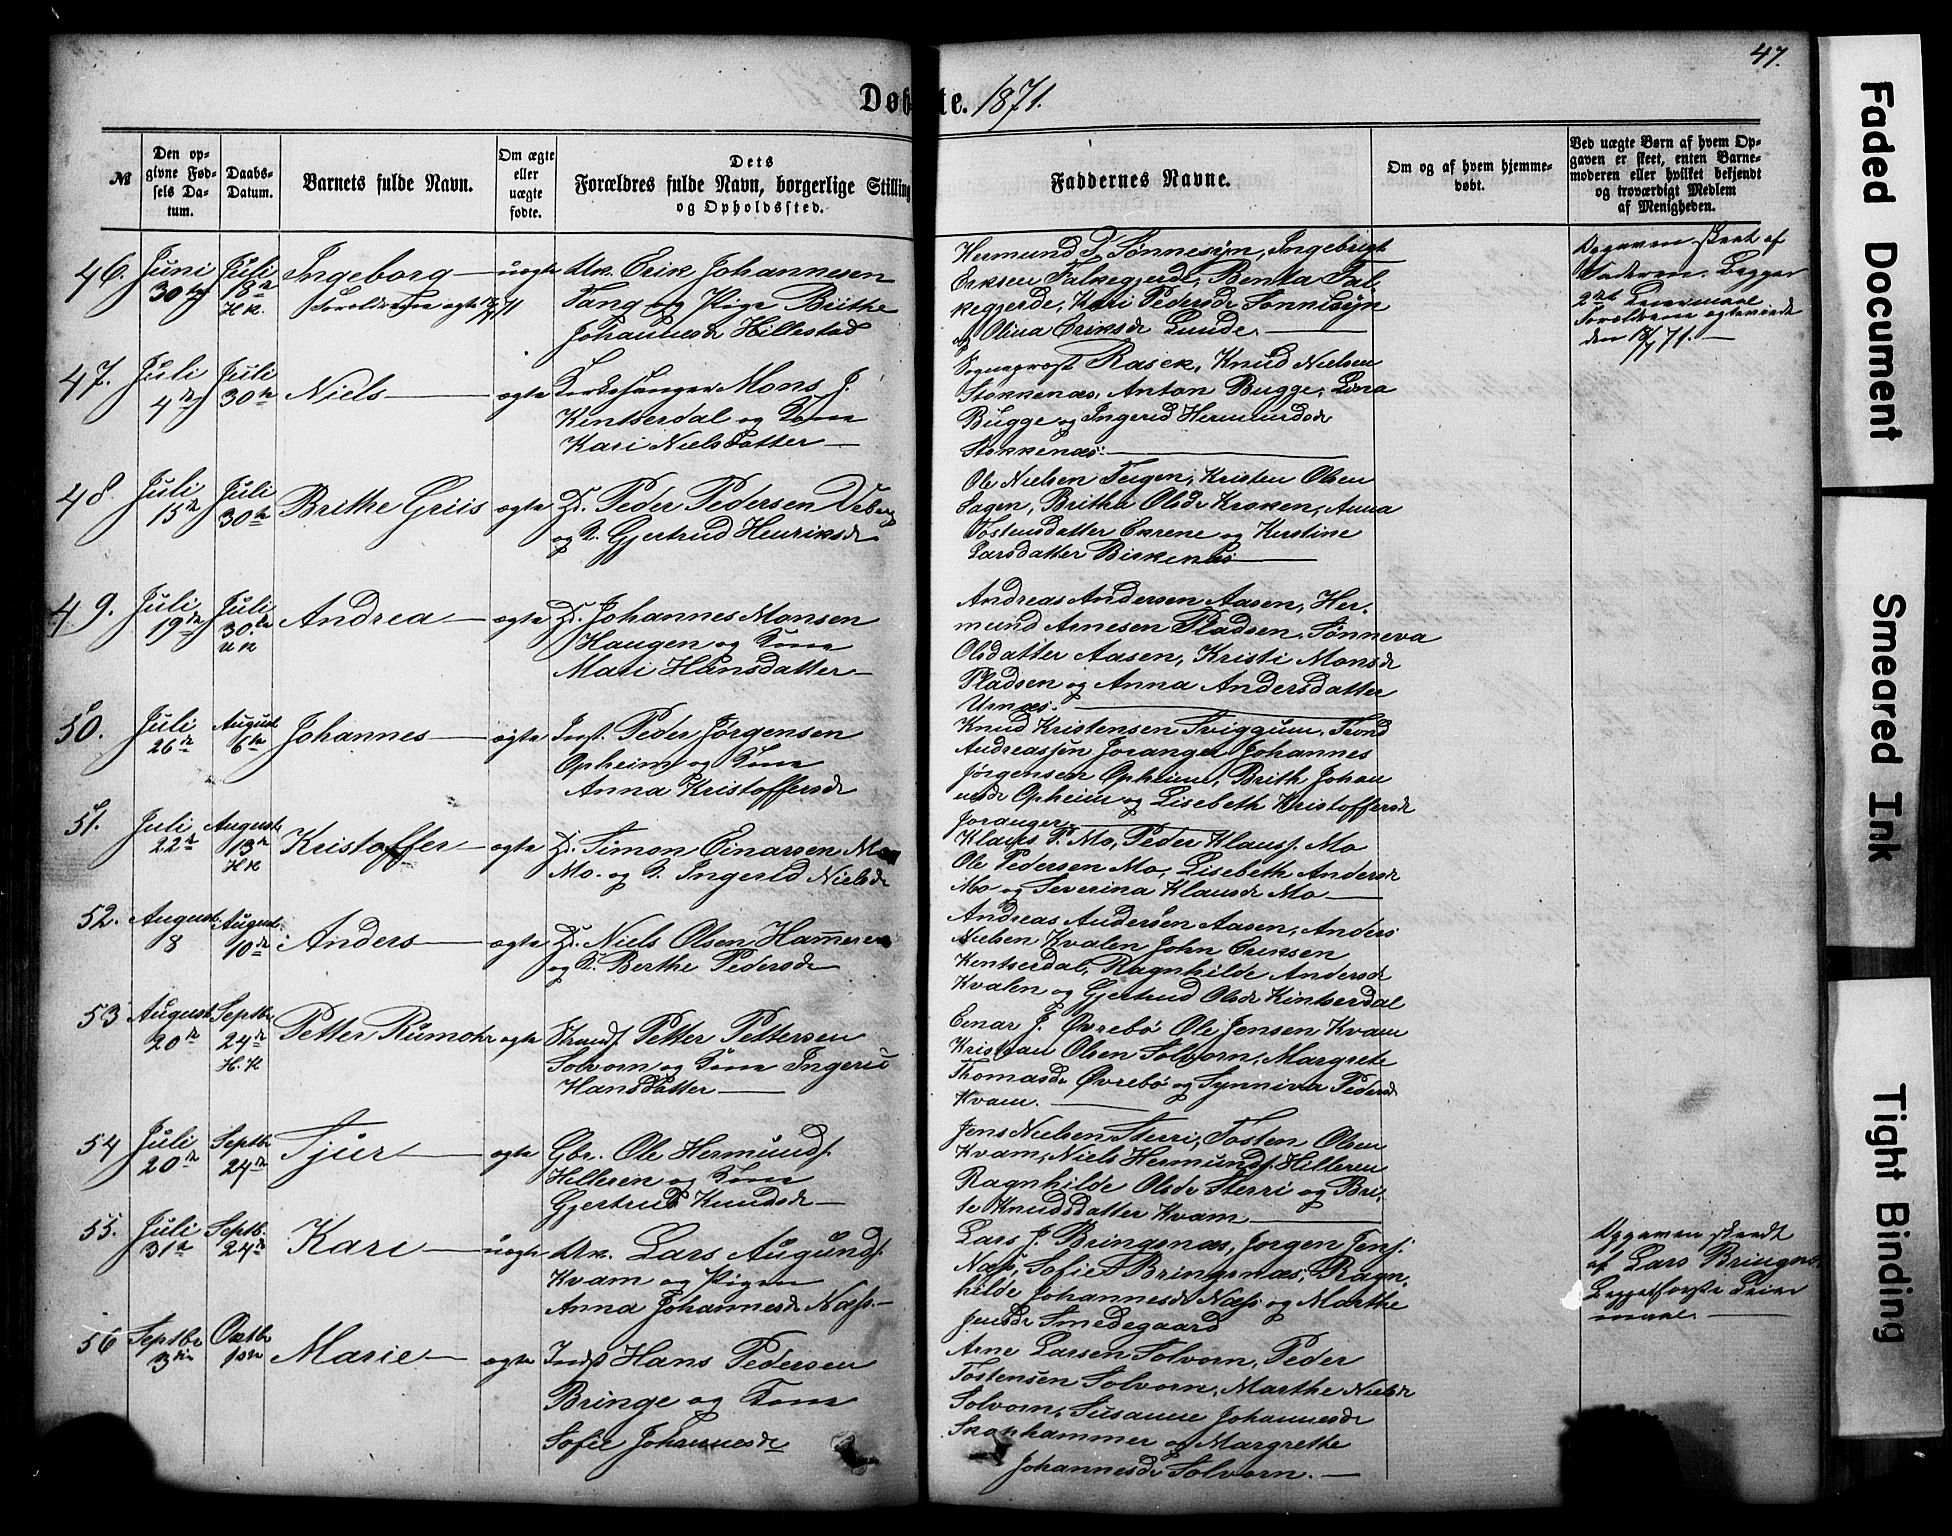 47.
Døbte. 1871.
№
Den op-
givne Fød-
sels Da-
tum.
Daabs-
Datum.
Barnets fulde Navn.
Om ægte
eller
uægte
fødte.
Dets
Forældres fulde Navn, borgerlige Stilling
og Opholdssted.
Faddernes Navne.
Om og af hvem hjemme-
døbt.
Ved uægte Børn af hvem Op-
gaven er skeet, enten Barne-
moderen eller hvilket bekjendt
og troværdigt Medlem
af Menigheden.
46.
Juni
30te
Juli
18de
H.K.
Ingeborg
uægte
Ukr. Erik Johannesen
Tang og Pige Brithe
Johannesdr Hillestad
Hermund T. Sønnesyn, Ingebrigt
Eriksen Falkegjerde, Benta Fal-
kegjerde, Kari Pedersdr Sønnesyn
og Olina Eriksdr Lunde.
Opgaven skeet af
Faderen. Begges
2det Leiermaal
Forældrene ægteviede
den 18/7 71.
47.
Juli
4de
Juli
30te
Niels
ægte
Kirkesanger Mons J.
Kentserdal og Kone
Kari Nielsdatter
Sognepræst Rasck, Knud Nielsen
Stokkenæs, Anton Bugge, Lena
Bugge og Ingerid Hermundsdr
Stokkenæs.
48
Juli
15de
Juli
30te
Brithe Griis
ægte
Hd. Peder Pedersen
og K. Gjertrud Henriksdr
Ole Nielsen Teigen, Kristen Olsen
Hagen, Britha Olsdr Kroken, Anna
Tostensdatter Ekrene og Kerstine
Larsdatter Birkenæs
49.
Juli
19de
Juli
30te
U K
Andrea
ægte
Hd. Johannes Monsen
Haugen og Kone
Mari Hansdatter
Andreas Andersen Aasen, Her-
mund Arnesen Pladsen, Sønneva
Olsdatter Aasen, Kristi Monsdr
Pladsen og Anna Andersdatter
Urnæs.
50.
Juli
26de
August
6te
Johannes
ægte
Inst. Peder Jørgensen
Opheim og Kone
Anna Kristoffersdr
Knud Kristensen Sviggum, Trond
Andreassen Joranger, Johannes
Jørgensen Opheim, Brith Johan
nesdr Opheim og Lisebeth Kristoffersdr
Joranger.
51.
Juli
22de
August
13de
H K
Kristoffer
ægte
Hd. Simon Einarsen
Mo. og K. Ingerid Nielsdr
Klaus P. Mo, Peder Klausf. Mo
Ole Pedersen Mo, Lisebeth Andersdr
Mo og Severina Klausdr Mo
52.
August
8
August
10de
Anders
ægte
Hd. Niels Olsen Hammeren
og K. Berthe Pedersdr
Andreas Andersen Aasen, Anders
Nielsen Kvalen, John Eriksen
Kentserdal, Ragnhilde Andersdr
Kvalen og Gjertrud Olsdr Kintserdal
53
August
20de
Septbr
24de
H.K
Petter Rumohr
ægte
Strandf. Petter Pettersen
Solvorn og Kone Ingerid
Hansdatter
Einar J. Øvrebø, Ole Jensen Kvam
Kristian Olsen Solvorn, Margrete
Thomasdr Øvrebø og Synniva Pedersdr
Kvam.
54
Juli
20de
Septbr
24de
Sjur
ægte
Gbr. Ole Hermundf.
Hilleren og Kone
Gjertrud Knudsdr
Jens Nielsen Sterri, Tosten Olsen
Kvam, Niels Hermundf. Hilleren
Ragnhilde Olsdr Sterri og Bri-
te Knudsdatter Kvam
55.
Juli
31te
Septb.
24de
Kari
uægte
Ukr. Lars Augundf.
Kvam og Pigen
Anna Johannesdr Næss.
Lars J. Bringsnæs, Jørgen Jensf.
Næss, Sofie Bringsnæs, Ragn-
hilde Johannesdr Næss og Marthe
Jensdr Smedegaard
Opgaven skeedt
af Lars Bringsnæs.
Begges første Leier
maal.
56
Septbr
3die
Octbr
1ste
Marie
ægte
Indst Hans Pedersen
Bringe og Kone
Sofie Johannesdr
Arne Larsen Solvorn, Peder
Tostensen Solvorn, Marthe Nielsdr
Solvorn, Susanne Johannesdr
Skophammer og Margrethe
Johannesdr Solvorn.
Faded Document
Smeared Ink
Tight Binding